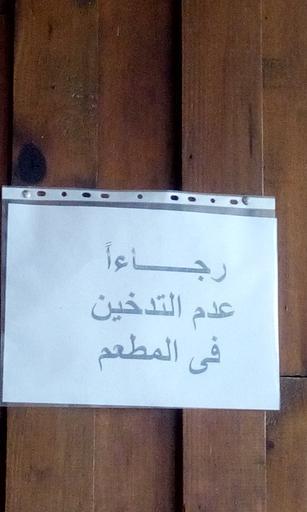 رجــــــاءاً
عدم التدخين
فى المطعم